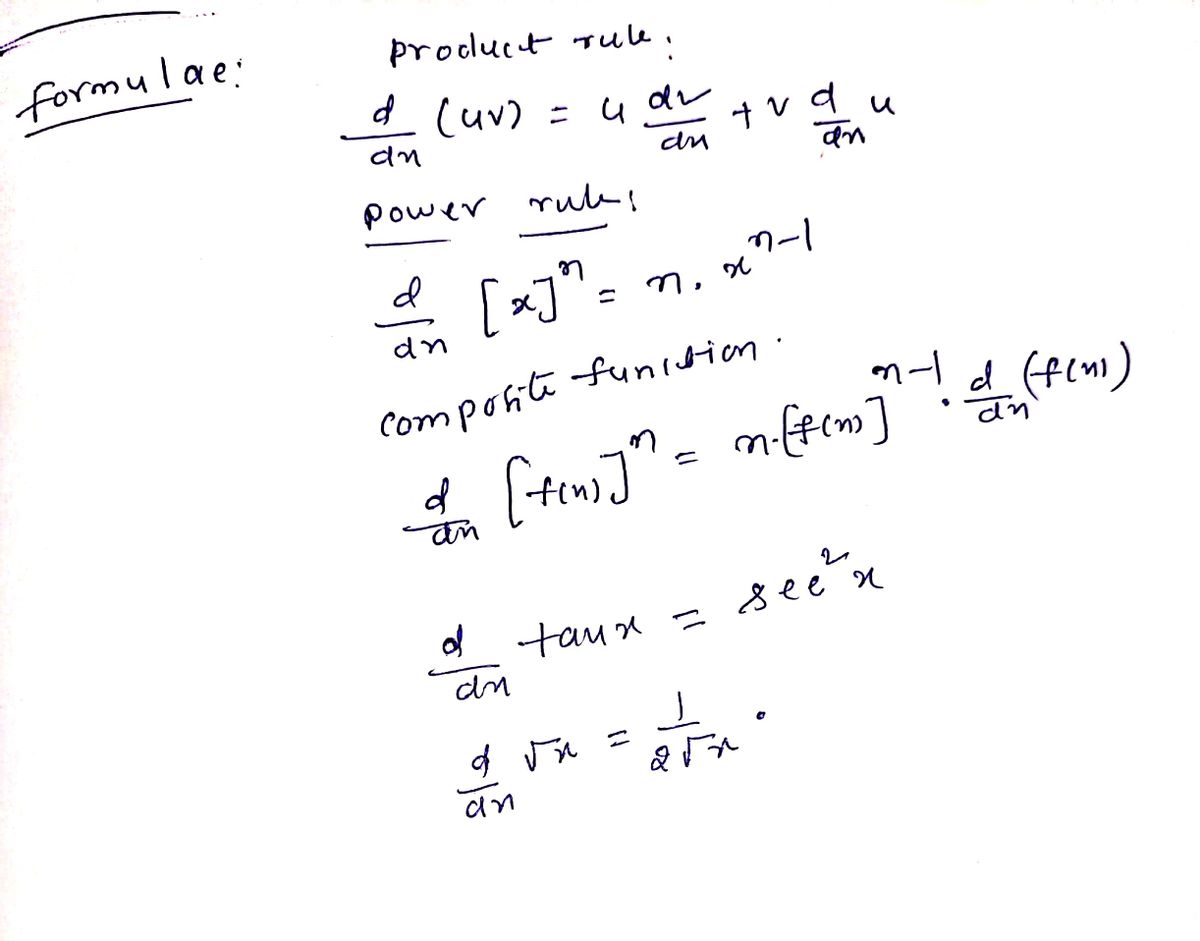 formulae:
product rule:
d/dx (uv) = u dv/dx + v d/dx u
power rule:
d/dx [x]^n = n. x^n-1
composite function.
d/dx [f(x)]^n = n.[f(x)]^n-1 . d/dx (f(x))
d/dx tanx = sec²x
d/dx √x = 1/2√x .